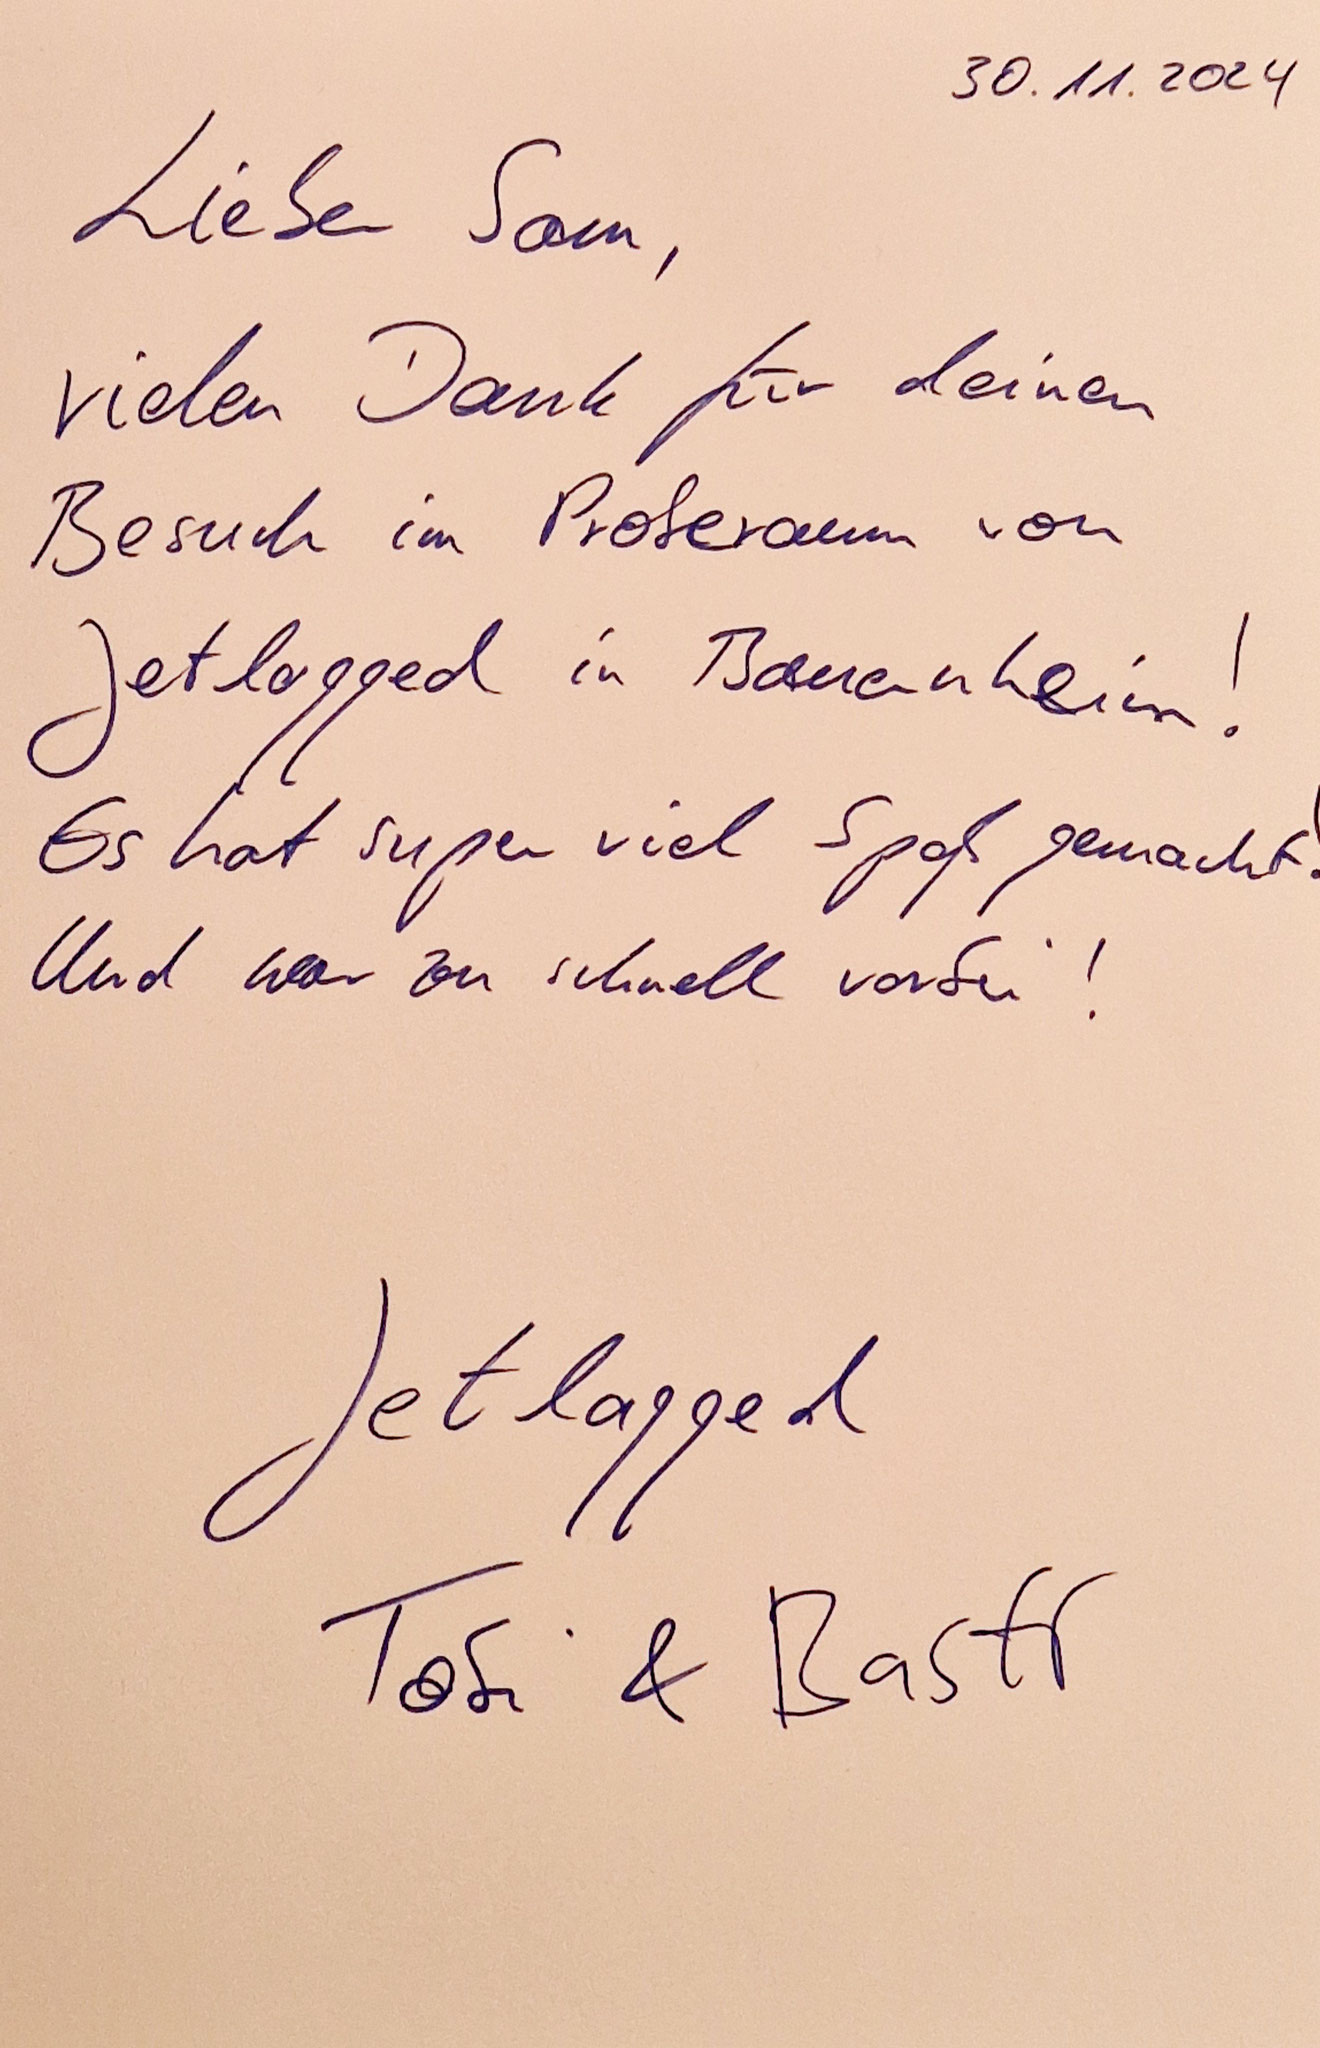 30.11.2024
Lieber Sam,
vielen Dank für deinen
Besuch im Proberaum von
Jetlagged in Bauernheim!
Es hat super viel Spaß gemacht!
Und war zu schnell vorbei!
Jetlagged
Tobi & Basti